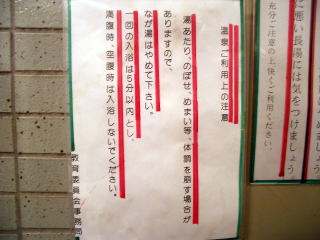 に悪い長湯には気をつけましょう
充分ご注意の上快くご利用ください。
温泉ご利用上の注意
湯あたり、のぼせ、めまい等、体調を崩す場合が
ありますので、
なが湯はやめて下さい。
一回の入浴は5分以内とし、
満腹時、空腹時は入浴しないでください。
教育委員会事務局